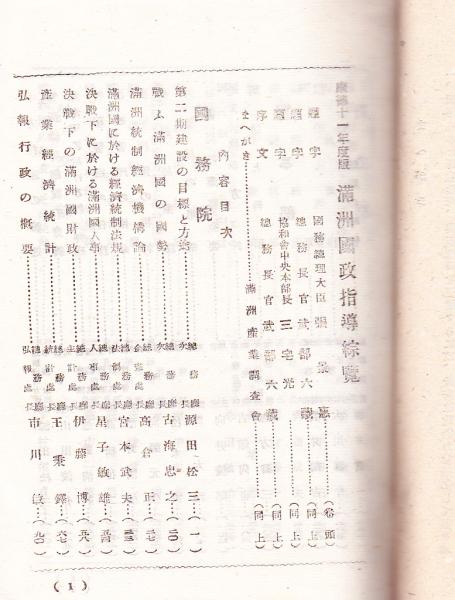 康徳十一年度版 満洲國政指導綜覽
内容目次
題字 國務總理大臣 張景惠 (卷頭)
題字 總務長官 武部六藏 (同上)
題字 協和會中央本部長 三宅光 (同上)
序文 總務長官 武部六藏 (同上)
まへがき 滿洲産業調査會 (同上)
國務院
第二期建設の目標と方途 總務廳次長 源田松三 (一)
戰ふ滿洲國の國勢 總務廳次長 古海忠之 (二〇)
滿洲統制經濟機構論 總務廳企畫處長 高倉正
滿洲國に於ける經濟統制法規 總務廳法制處長 宮本武夫
決戰下に於ける滿洲國人事 總務廳人事處長 星子敏雄
決戰下の滿洲國財政 總務廳主計處長 伊藤博
産業經濟統計 總務廳統計處長 王秉鐸
弘報行政の概要 總務廳弘報處長 市川敏 (九〇)
(1)